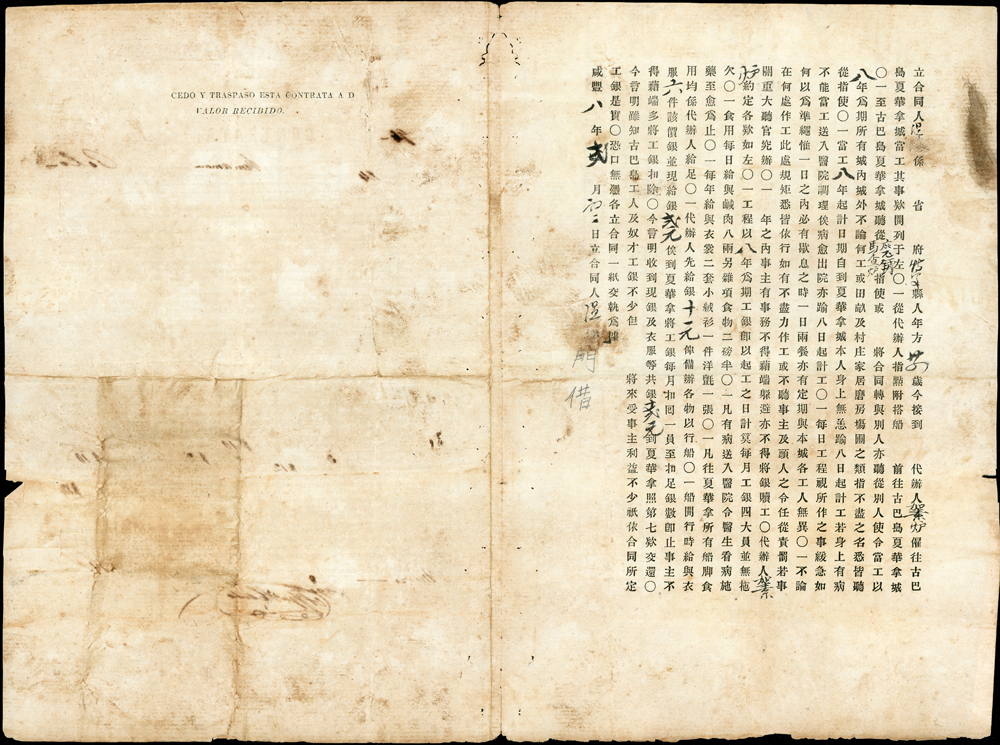 CEDO Y TRASPASO ESTA CONTRATA A D
VALOR RECIBIDO.
立合同人溫係 省 府 縣人年方 歲今接到 代辦人 僱往古巴
島夏華拿城當工其事欵開列于左〇一從代辦人指點附搭船 前往古巴島夏華拿城
〇一至古巴島夏華拿城聽從 指使或 將合同轉與別人亦聽從別人使令當工以
八年爲期所有城內城外不論何工或田畝及村庄家居磨房塲圈之類指不盡之名悉皆聽
從指使〇一當工八年起計日期自到夏華拿城本人身上無恙踰八日起計工若身上有病
不能當工送入醫院調理俟病愈出院亦踰八日起計工〇一每日工程視所作之事緩急如
何以爲準繩惟一日之內必有歇息之時一日兩餐亦有定期與本城各工人無異〇一不論
在何處作工此處規矩悉皆依行如有不盡力作工或不聽事主及頭人之令任從責罰若事
關重大聽官究辦〇一 年之內事主有事務不得藉端躲避亦不得將銀贖工〇代辦人
約定各欵如左〇一工程以八年爲期工銀卽以起工之日計算每月工銀四大員並無拖
欠〇一食用每日給與鹹肉八兩另雜項食物二磅半〇一凡有病送入醫院令醫生看病施
藥至愈爲止〇一每年給與衣裳二套小絨衫一件洋氈一張〇一凡往夏華拿所有船脚食
用均係代辦人給足〇一代辦人先給銀十二元俾備辦各物以行船〇一船開行時給與衣
服六件該價銀並現給銀弍元俟到夏華拿將工銀每月扣囘一員至扣足銀數卽止事主不
得藉端多將工銀扣除〇今曾明收到現銀及衣服等共銀 元到夏華拿照第七欵交還〇
今曾明雖知古巴島工人及奴才工銀不少但 將來受事主利益不少祇依合同所定
工銀是實〇恐口無憑各立合同一紙交執爲據
咸豐八年弍月初二日立合同人溫
門
借